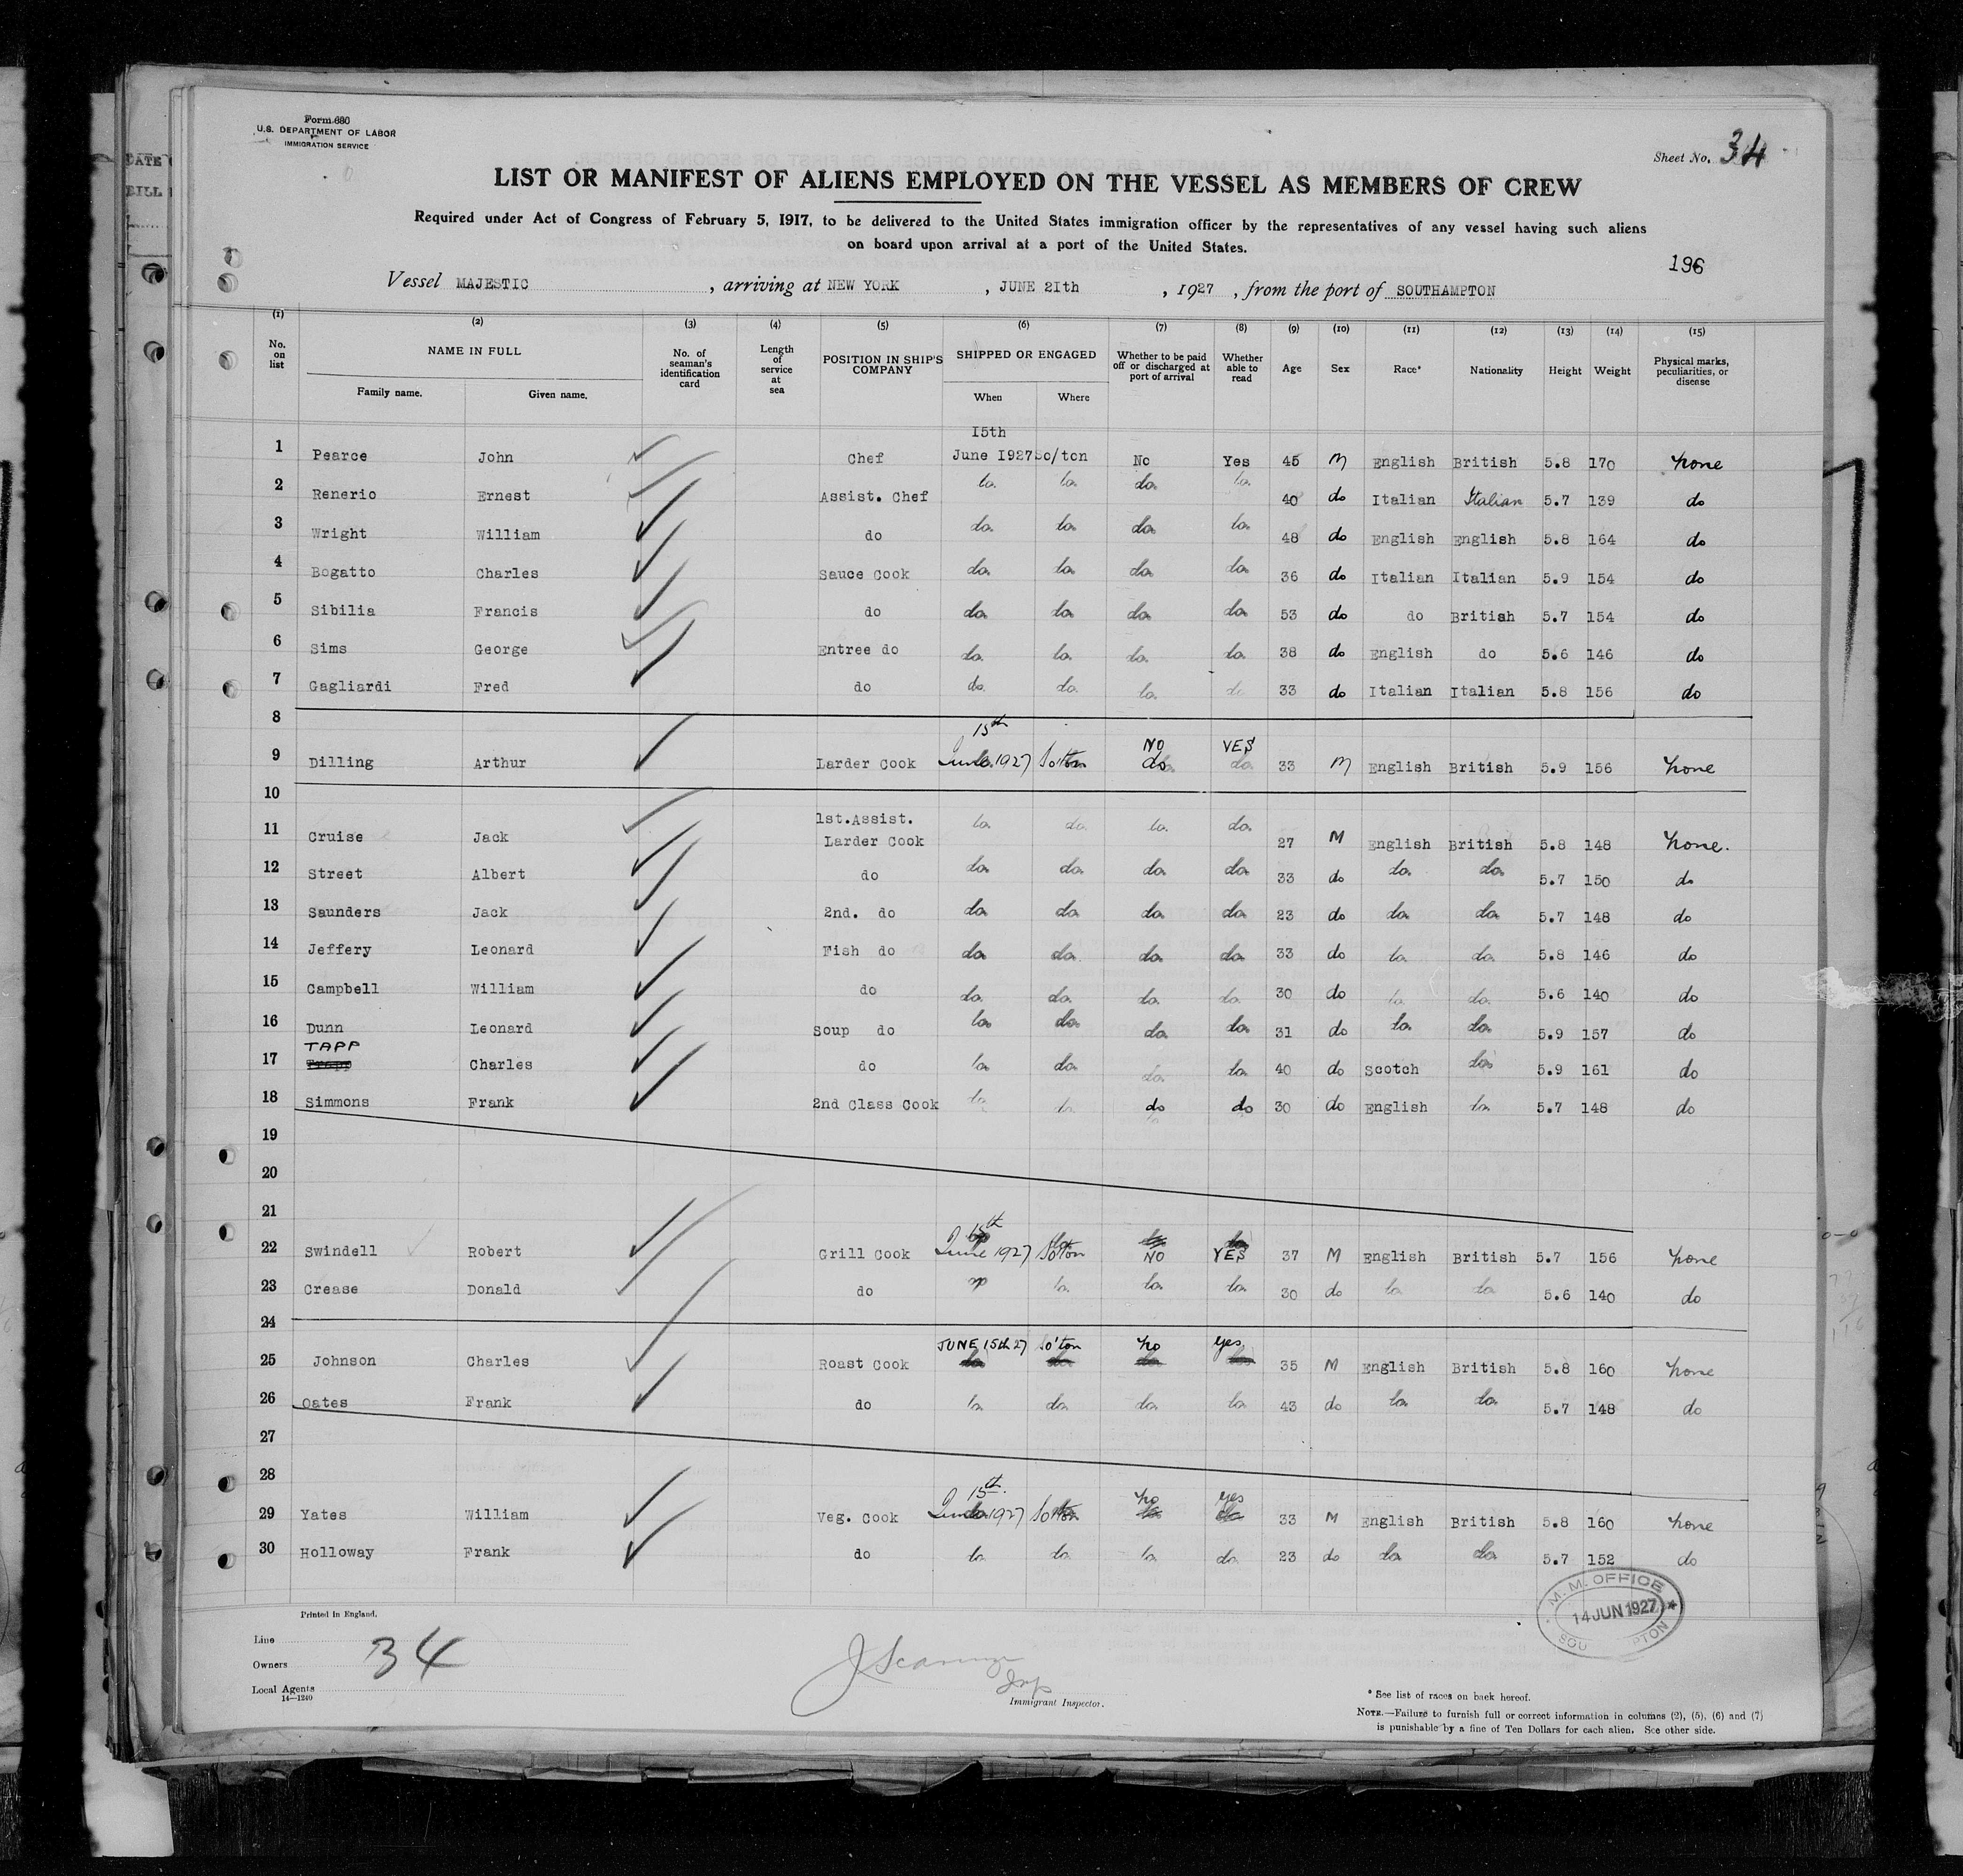 Form 680
U.S. DEPARTMENT OF LABOR
IMMIGRATION SERVICE
Sheet No. 34
LIST OR MANIFEST OF ALIENS EMPLOYED ON THE VESSEL AS MEMBERS OF CREW
Required under Act of Congress of February 5, 1917, to be delivered to the United States immigration officer by the representatives of any vessel having such aliens
on board upon arrival at a port of the United States.
196
Vessel MAJESTIC, arriving at NEW YORK, JUNE 2Ith, 1927, from the port of SOUTHAMPTON
(1) (2) (3) (4) (5) (6) (7) (8) (9) (10) (11) (12) (13) (14) (15)
No. on list NAME IN FULL Family name. Given name. No. of seaman's identification card Length of service at sea POSITION IN SHIP'S COMPANY SHIPPED OR ENGAGED When Where Whether to be paid off or discharged at port of arrival Whether able to read Age Sex Race* Nationality Height Weight Physical marks, peculiarities, or disease
I5th
1 Pearce John Chef June I927 So/ton No Yes 45 M English British 5.8 170 none
2 Renerio Ernest Assist. Chef do do do do 40 do Italian Italian 5.7 139 do
3 Wright William do do do do do 48 do English English 5.8 164 do
4 Bogatto Charles Sauce Cook do do do do 36 do Italian Italian 5.9 154 do
5 Sibilia Francis do do do do do 53 do do British 5.7 154 do
6 Sims George Entree do do do do do 38 do English do 5.6 146 do
7 Gagliardi Fred do do do do do 33 do Italian Italian 5.8 156 do
8
15th NO YES
9 Dilling Arthur Larder Cook June 1927 So'ton do do 33 M English British 5.9 156 none
10
1st.Assist.
11 Cruise Jack Larder Cook do do do do 27 M English British 5.8 148 none.
12 Street Albert do do do do do 33 do do do 5.7 150 do
13 Saunders Jack 2nd. do do do do do 23 do do do 5.7 148 do
14 Jeffery Leonard Fish do do do do do 33 do do do 5.8 146 do
15 Campbell William do do do do do 30 do do do 5.6 140 do
16 Dunn Leonard Soup do do do do do 31 do do do 5.9 157 do
TAPP
17 Trapp Charles do do do do do 40 do Scotch do 5.9 161 do
18 Simmons Frank 2nd Class Cook do do do do 30 do English do 5.7 148 do
19
20
21
15th
22 Swindell Robert Grill Cook June 1927 So'ton NO YES 37 M English British 5.7 156 none
23 Crease Donald do do do do do 30 do do do 5.6 140 do
24
JUNE 15th 27 So'ton no yes
25 Johnson Charles Roast Cook 35 M English British 5.8 160 none
26 Oates Frank do do do do do 43 do do do 5.7 148 do
27
28
15th no yes
29 Yates William Veg. Cook June 1927 So'ton do do 33 M English British 5.8 160 none
30 Holloway Frank do do do do do 23 do do do 5.7 152 do
M. M. OFFICE
14 JUN 1927
Printed in England.
Line
Owners
Local Agents
14—1240
34
Insp
Immigrant Inspector.
* See list of races on back hereof.
NOTE.—Failure to furnish full or correct information in columns (2), (5), (6) and (7)
is punishable by a fine of Ten Dollars for each alien. See other side.